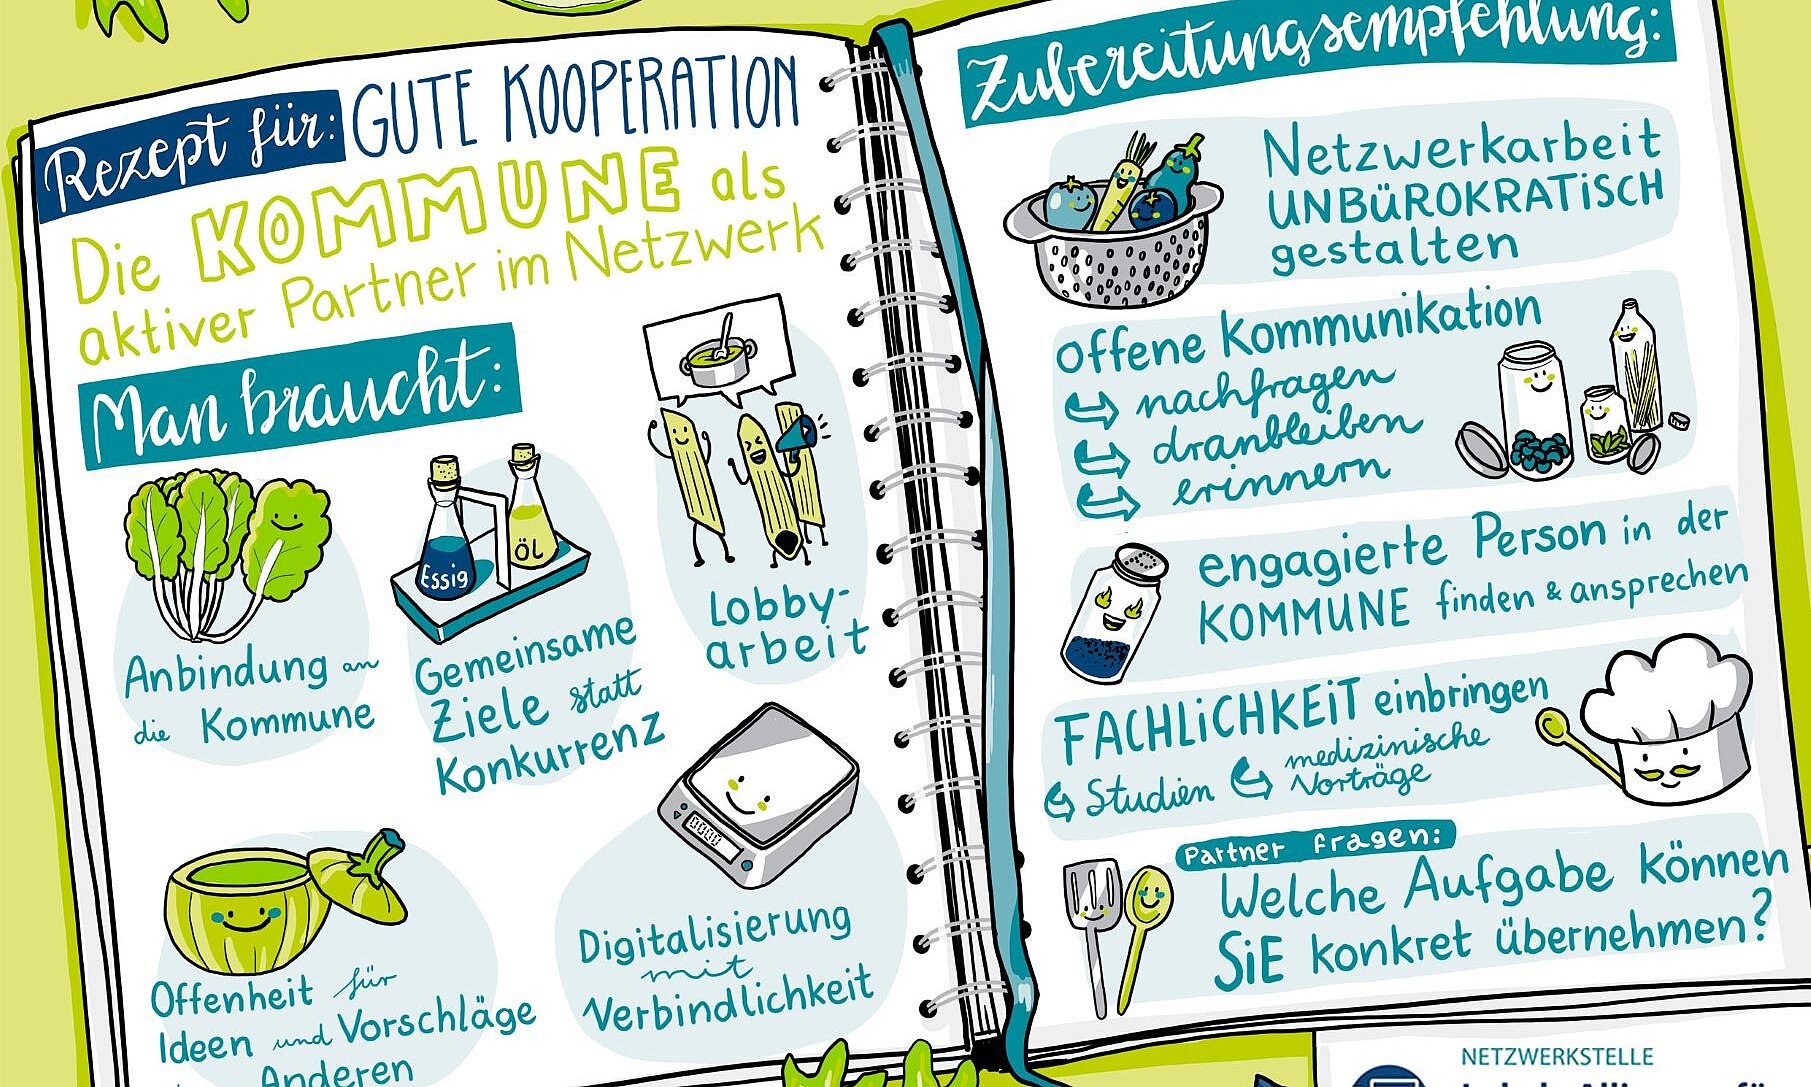 Rezept für: GUTE KOOPERATION
Die KOMMUNE als
aktiver Partner im Netzwerk
Man braucht:
Anbindung an
die Kommune
Essig
Öl
Gemeinsame
Ziele statt
Konkurrenz
Lobby-
arbeit
Offenheit für
Ideen und Vorschläge
Anderen
0000
Digitalisierung
mit
Verbindlichkeit
Zubereitungsempfehlung:
Netzwerkarbeit
UNBÜROKRATISCH
gestalten
offene Kommunikation
nachfragen
dranbleiben
erinnern
engagierte Person in der
KOMMUNE finden & ansprechen
FACHLICHKEIT einbringen
Studien
medizinische
Vorträge
Partner fragen:
Welche Aufgabe können
SIE konkret übernehmen?
NETZWERKSTELLE